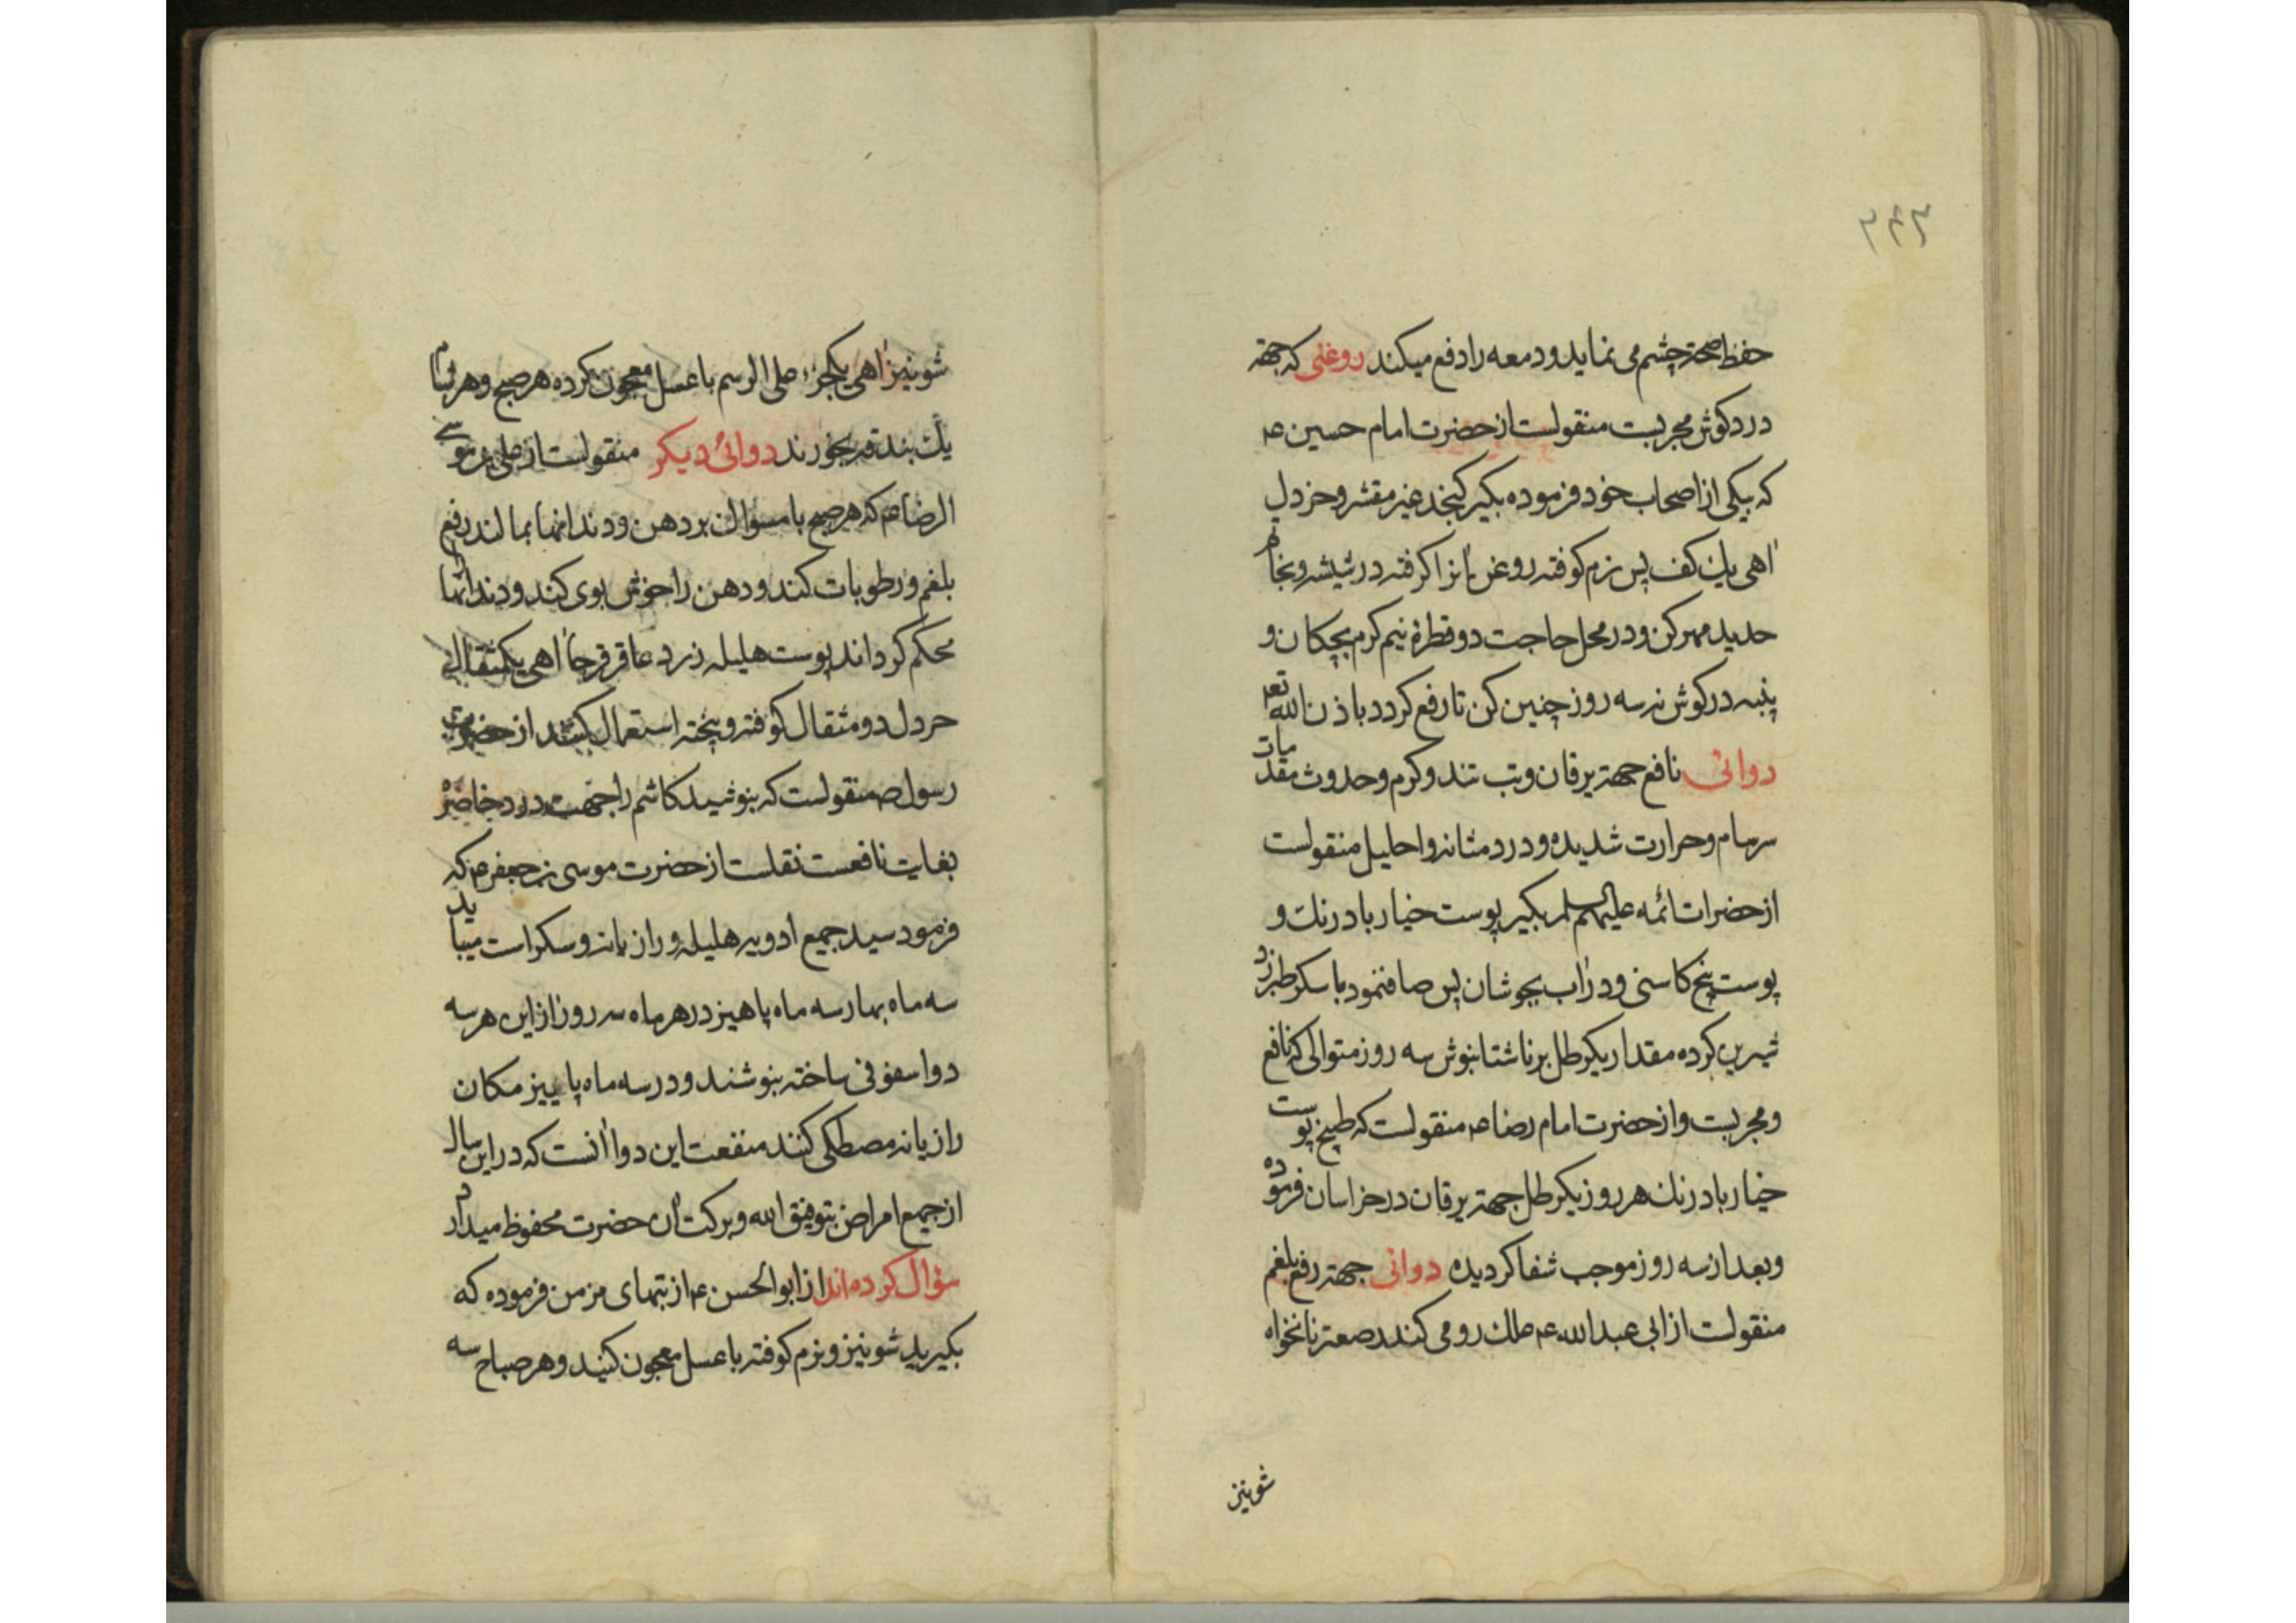 ۳۴۳
حفظ صحة چشم می نماید و دمعه را دفع میکند روغنی که جهة
درد کوش مجربست منقولست از حضرت امام حسین ع
که بیکی از اصحاب خود فرموده بکیر کنجد غیر مقشر و خردل
اهی یك کف پس نرم کوفته روغن انرا کرفته در شیشه و بخاتم
حدید مهر کن و در محل حاجت دو قطره نیم کرم بچکان و
پنبه در کوش نه سه روز چنین کن تا رفع کردد باذن الله تعه
دوائی نافع جهة یرقان و تب تند و کرم و حدوث مقدمات
سرسام و حرارت شدیده و درد مثانه و احلیل منقولست
از حضرات ائمه علیهم السلم بکیر پوست خیار بادرنك و
پوست بیخ کاسنی و در آب بجوشان پس صاف نمود با سکر طبرزد
شیرین کرده مقدار یکرطل بر ناشتا بنوش سه روز متوالی که نافع
و مجربست و از حضرت امام رضا ع منقولست که طبیخ پوست
خیار بادرنك هر روز یکرطل جهة یرقان در خراسان فرموده
و بعد از سه روز موجب شفا کردیده دوائی جهة رفع بلغم
منقولست از ابی عبدالله ع علك رومی کندر صعتر نانخواه
شونیز
شونیز اهی یکجزء علی الرسم با عسل معجون کرده هر صبح و هر شام
یك بندقه بخورند دوائی دیکر منقولست از علی بن موسی
الرضا ع که هر صبح با مسواك بر دهن و دندانها بمالند رفع
بلغم و رطوبات کند و دهن را خوش بوی کند و دندانها را
محکم کرداند پوست هلیله زرد عاقرقرحا اهی یکمثقال
حردل دو مثقال کوفته و پخته استعمال کنند از حضرت
رسول ص منقولست که بنوشید کاشم را جهت درد خاصره
بغایت نافعست نقلست از حضرت موسی بن جعفر ع که
فرمود سید جمیع ادویه هلیله و رازیانه و سکر است میباید
سه ماه بهار سه ماه پاهیز در هر ماه سه روز از این هر سه
دوا سفوفی ساخته بنوشند و در سه ماه پاییز مکان
رازیانه مصطکی کنند منفعت این دوا آنست که در این سال
از جمیع امراض بتوفیق الله و برکت آن حضرت محفوظ میدارد
سؤال کرده اند از ابوالحسن ع از تبهای مزمن فرموده که
بکیرید شونیز و نرم کوفته با عسل معجون کنید و هر صباح سه